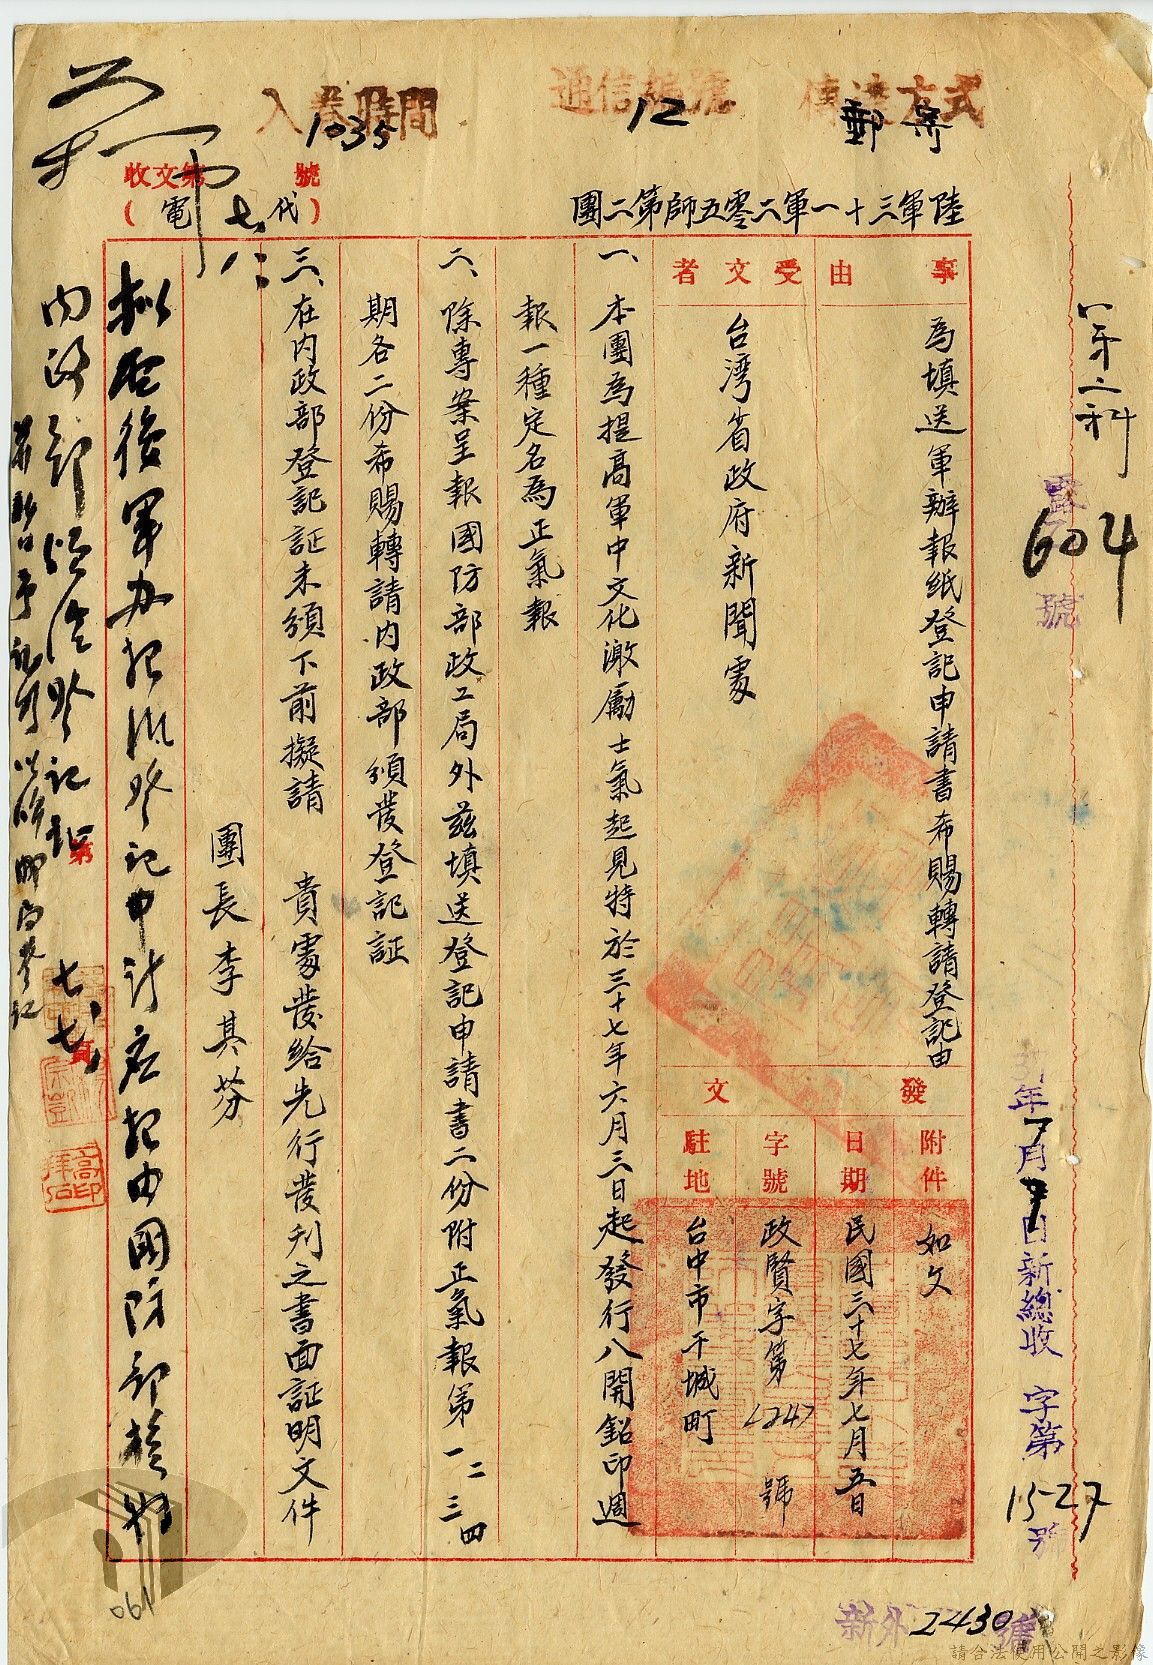 傳達方式
郵寄
通信編號
12
入卷時間
1035
第二科
604
號
年7月7日新總收 字第1527號
陸軍三十一軍二零五師第二團
收文第 號
(代電)
七、八、
事由
為填送軍辦報紙登記申請書希賜轉請登記由
受文者
台灣省政府新聞處
發文
附件
如文
日期
民國三十七年七月五日
字號
政賢字第1247號
駐地
台中市干城町
一、本團為提高軍中文化激勵士氣起見特於三十七年六月三日起發行八開鉛印週
報一種定名為正氣報
二、除專案呈報國防部政工局外茲填送登記申請書二份附正氣報第一二三四
期各二份希賜轉請內政部頒發登記証
三、在內政部登記証未頒下前擬請 貴處發給先行發刊之書面証明文件
團長李其芬
擬令後軍办報紙登記申請應報由國防部核轉
內政部 登記証
七、七、
第 頁
061
新外2430號
請合法使用公開之影像